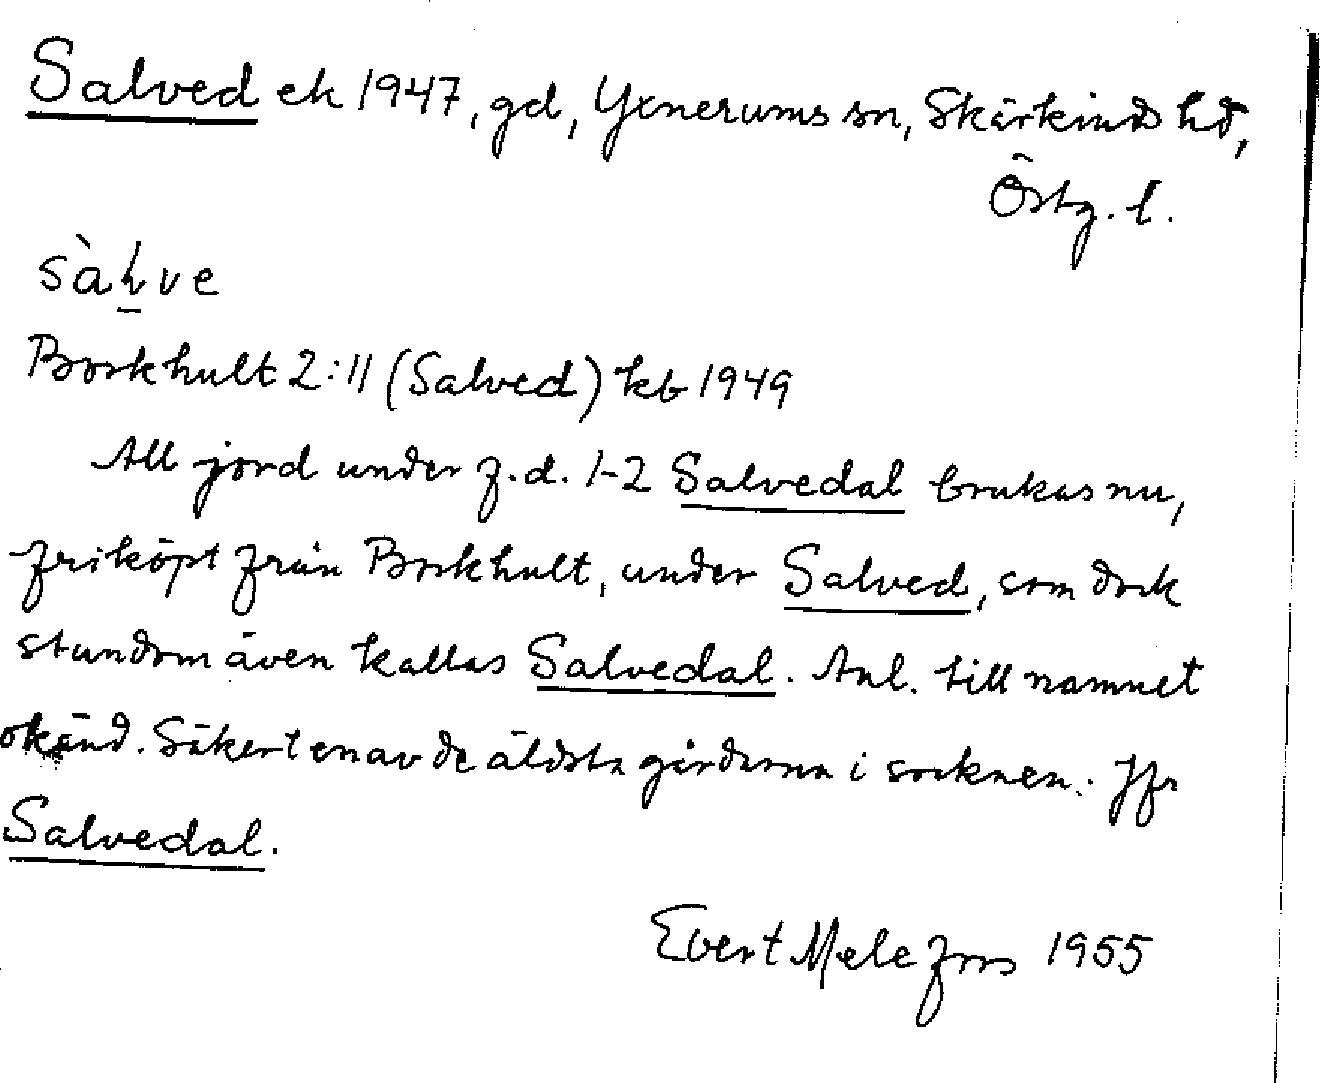 Salved ek 1947, gd, Yxnerums sn, Skärkinds hd,
Östg. l.
sàɫve
Borkhult 2:11 (Salved) kb 1949
All jord under f.d. 1-2 Salvedal brukas nu,
friköpt från Borkhult, under Salved, som dock
stundom även kallas Salvedal. Anl. till namnet
okänd. Säkert en av de äldsta gårdarna i socknen. Jfr
Salvedal.
Evert Melefors 1955